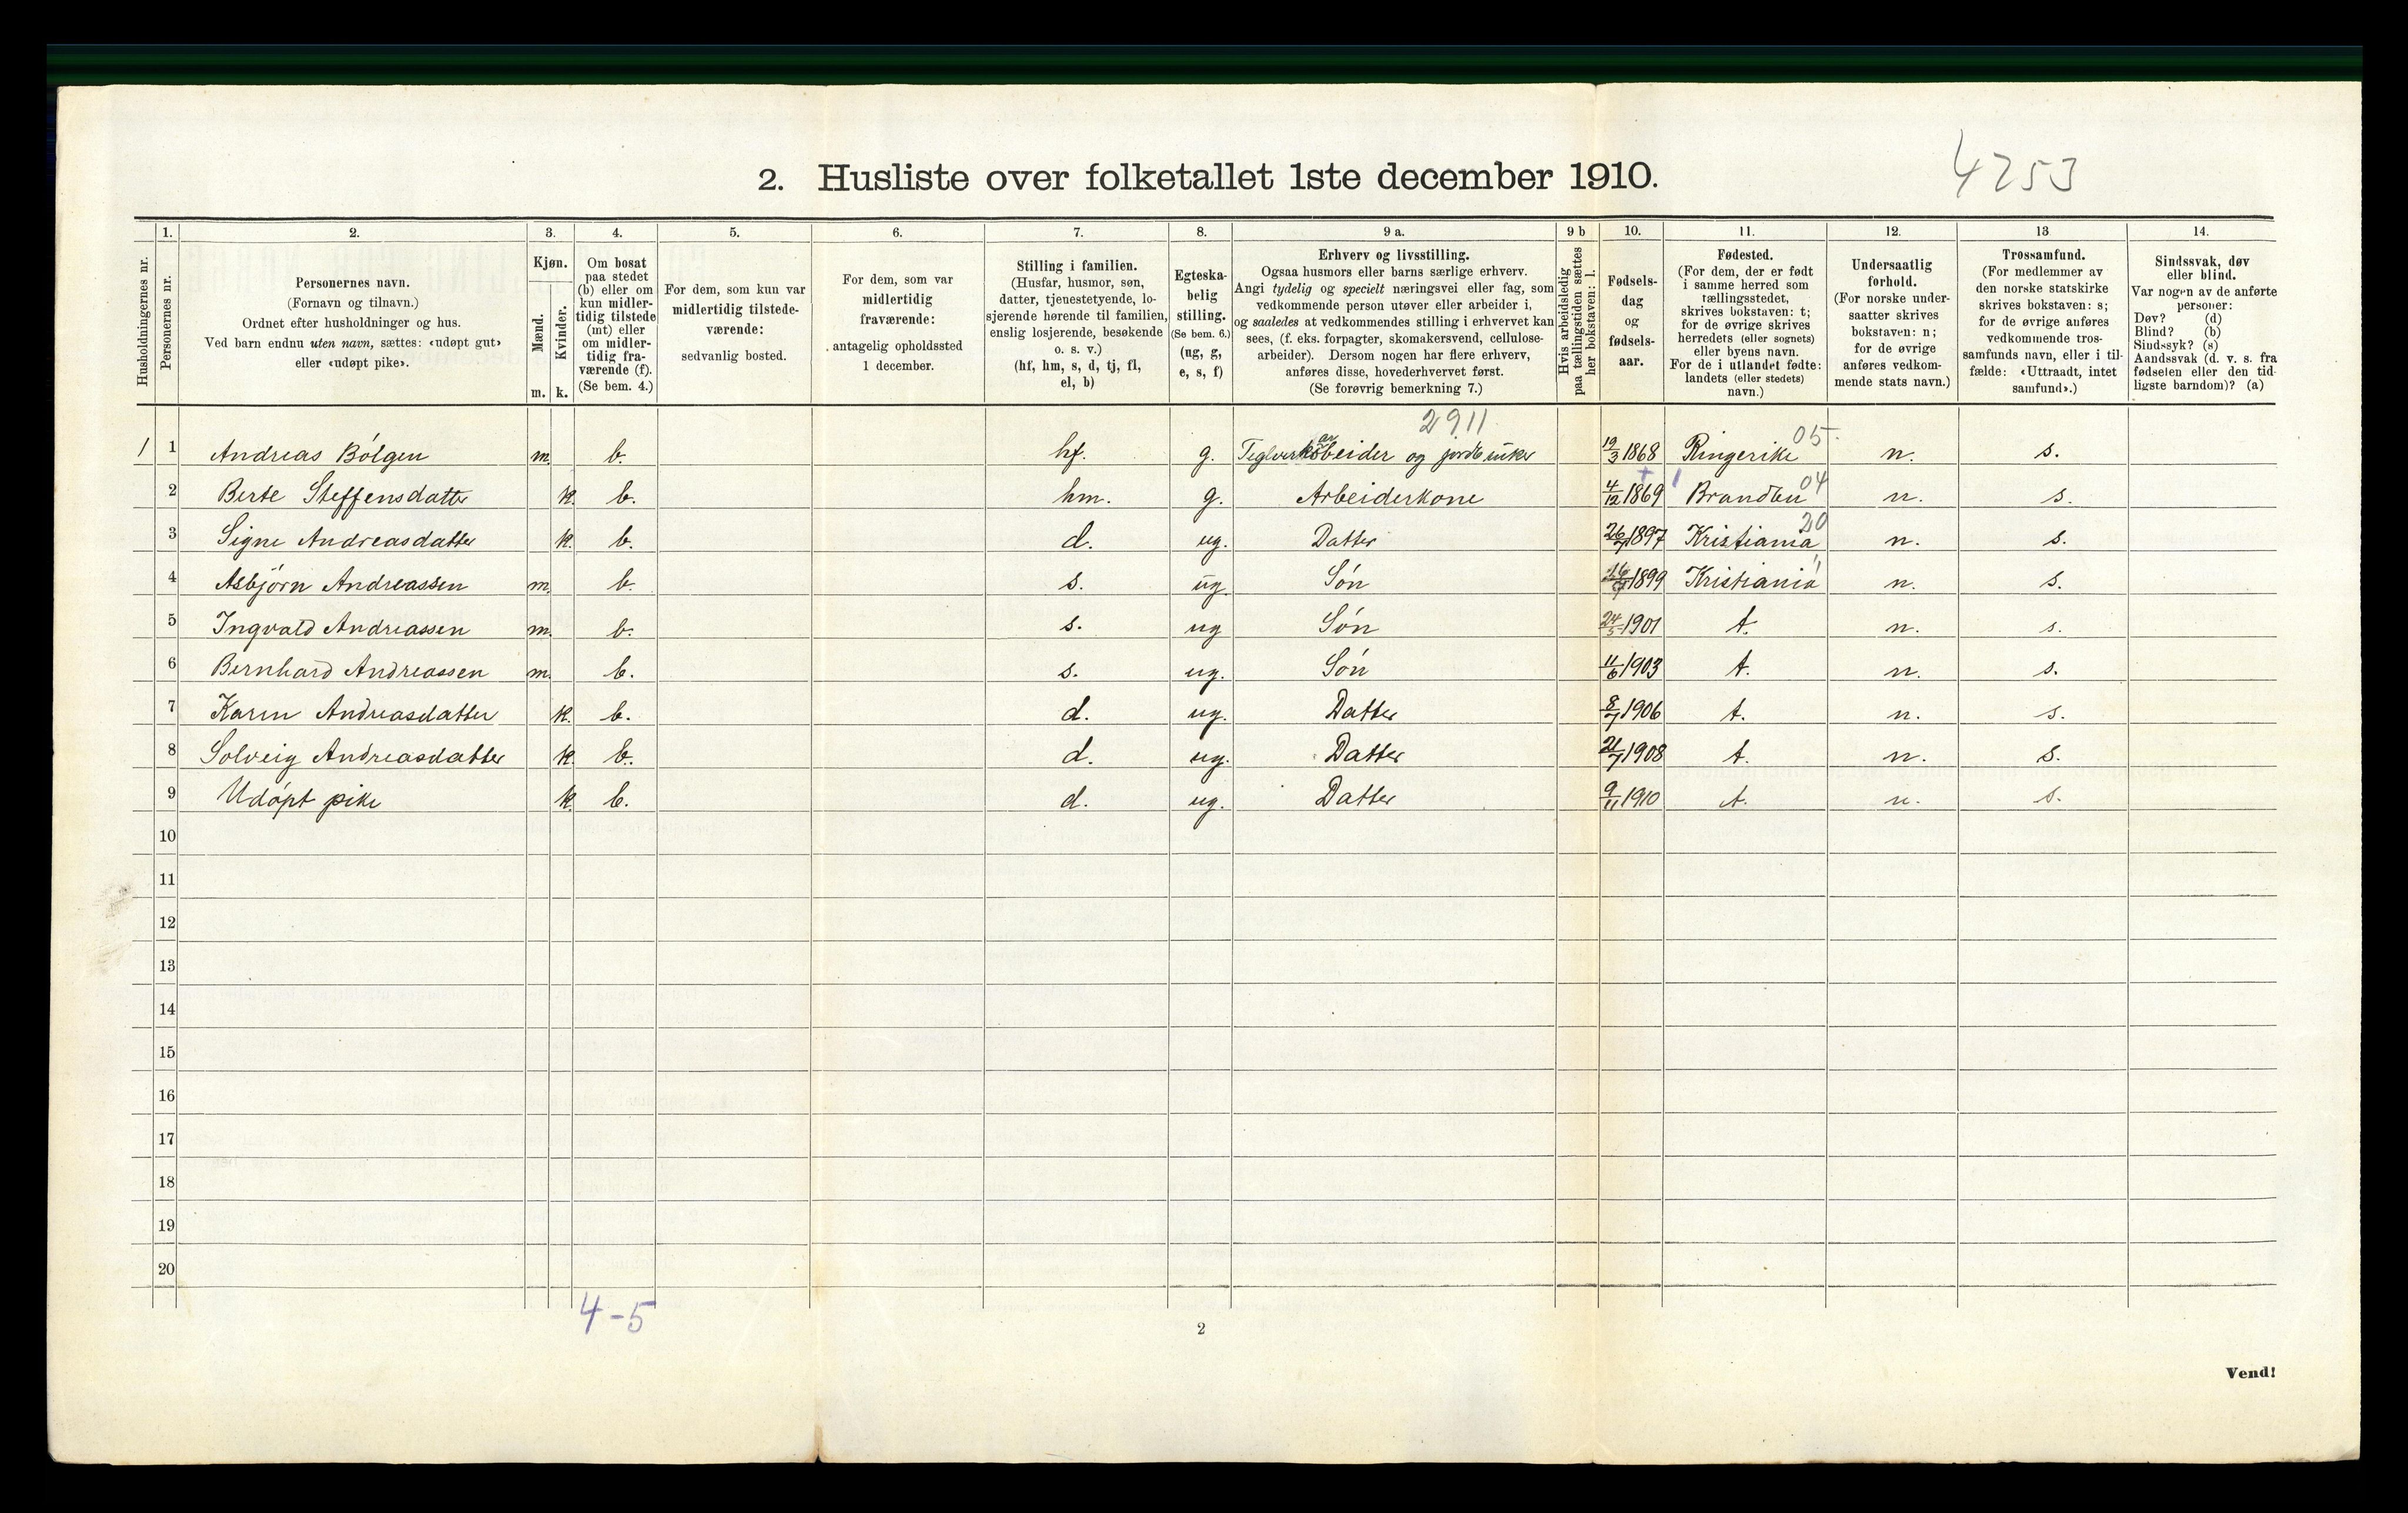 4253
2. Husliste over folketallet 1ste december 1910.
Husholdningernes nr.
1.
Personernes nr.
2.
Personernes navn.
(Fornavn og tilnavn.)
Ordnet efter husholdninger og hus.
Ved barn endnu uten navn, sættes: «udøpt gut»
eller «udøpt pike».
3.
Kjøn.
Mænd.
Kvinder.
m. k.
4.
Om bosat
paa stedet
(b) eller om
kun midler-
tidig tilstede
(mt) eller
om midler-
tidig fra-
værende (f).
(Se bem. 4.)
5.
For dem, som kun var
midlertidig tilstede-
værende:
sedvanlig bosted.
6.
For dem, som var
midlertidig
fraværende:
antagelig opholdssted
1 december.
7.
Stilling i familien.
(Husfar, husmor, søn,
datter, tjenestetyende, lo-
sjerende hørende til familien,
enslig losjerende, besøkende
o. s. v.)
(hf, hm, s, d, tj, fl,
el, b)
8.
Egteska-
belig
stilling.
(Se bem. 6.)
(ug, g,
e, s, f)
9 a.
Erhverv og livsstilling.
Ogsaa husmors eller barns særlige erhverv.
Angi tydelig og specielt næringsvei eller fag, som
vedkommende person utøver eller arbeider i,
og saaledes at vedkommendes stilling i erhvervet kan
sees, (f. eks. forpagter, skomakersvend, cellulose-
arbeider). Dersom nogen har flere erhverv,
anføres disse, hovederhvervet først.
(Se forøvrig bemerkning 7.)
9 b
Hvis arbeidsledig
paa tællingstiden sættes
her bokstaven: l.
10.
Fødsels-
dag
og
fødsels-
aar.
11.
Fødested.
(For dem, der er født
i samme herred som
tællingsstedet,
skrives bokstaven: t;
for de øvrige skrives
herredets (eller sognets)
eller byens navn.
For de i utlandet fødte:
landets (eller stedets)
navn.)
12.
Undersaatlig
forhold.
(For norske under-
saatter skrives
bokstaven: n;
for de øvrige
anføres vedkom-
mende stats navn.)
13
Trossamfund.
(For medlemmer av
den norske statskirke
skrives bokstaven: s;
for de øvrige anføres
vedkommende tros-
samfunds navn, eller i til-
fælde: «Uttraadt, intet
samfund».)
14.
Sindssvak, døv
eller blind.
Var nogen av de anførte
personer:
Døv? (d)
Blind? (b)
Sindssyk? (s)
Aandssvak (d. v. s. fra
fødselen eller den tid-
ligste barndom)? (a)
2911 05
1 1 Andreas Bólgen m. b. hf. g. Teglverksarbeider og jordbruker 19/3 1868 Ringerike n. s.
+ 1 04
2 Berte Steffensdatter k. b. hm. g. Arbeiderkone 4/12 1869 Brandbu n. s.
20
3 Signe Andreasdatter k. b. d. ug. Datter 26/7 1897 Kristiania n. s.
"
4 Asbjörn Andreassen m. b. s. ug. Són 1899 Kristiania n. s.
5 Ingvald Andreassen m. b. s. ug Són 24/5 1901 t. n. s.
6 Bernhard Andreassen m. b. s. ug. Són 11/6 1903 t. n. s.
7 Karen Andreasdatter k. b. d. ug. Datter 8/7 1906 t. n. s.
8 Solveig Andreasdatter k. b. d. ug. Datter 21/7 1908 t. n. s.
9 Udópt pike k. b. d. ug. Datter 9/11 1910 t. n. s.
10
11
12
13
14
15
16
17
18
19
20
4-5
2
Vend!